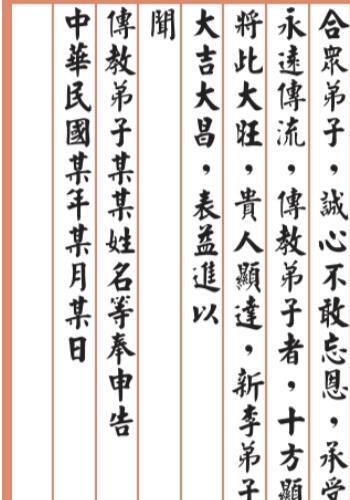 合眾弟子，誠心不敢忘恩，承受
永遠傳流，傳教弟子者，十方顯
將此大旺，貴人顯達，新李弟子
大吉大昌，表益進以
聞
傳教弟子某某姓名等奉申告
中華民國某年某月某日